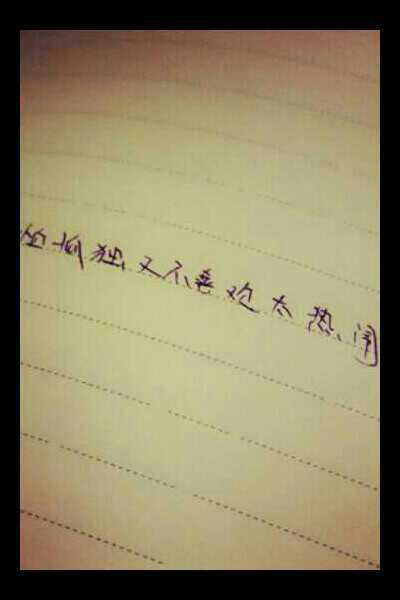 怕孤独又不喜欢太热闹